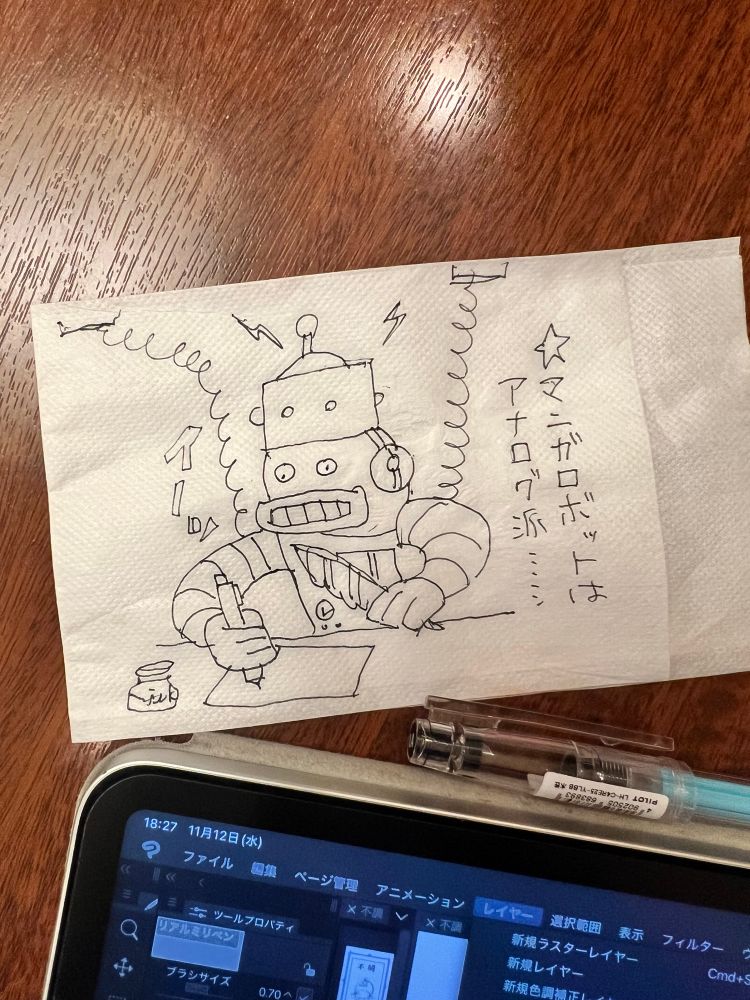 ☆マンガロボットは
アナログ派……
イーッ
PILOT LH-C4RE25-YLBB 水色
4 902505 693893
18:27 11月12日(水)
ファイル 編集 ページ管理 アニメーション レイヤー 選択範囲 表示 フィルター
ツールプロパティ
不調
不調
リアルミリペン
ブラシサイズ
0.70
不調
新規ラスターレイヤー
新規レイヤー